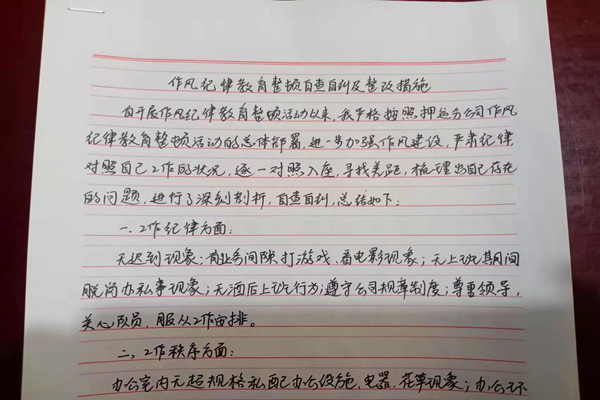 作风纪律教育整顿自查自纠及整改措施
自开展作风纪律教育整顿活动以来，我严格按照押运分公司作风
纪律教育整顿活动的总体部署，进一步加强作风建设，严肃纪律
对照自己工作的状况，逐一对照入座，寻找差距，梳理出自己存在
的问题，进行了深刻剖析，自查自纠，总结如下：
一、工作纪律方面：
无迟到现象；有业务间隙打游戏、看电影现象；无上班期间
脱岗办私事现象；无酒后上班行为；遵守公司规章制度；尊重领导，
关心队员、服从工作安排。
二、工作秩序方面：
办公室内无超规格私配办公设施、电器、花草现象；办公环